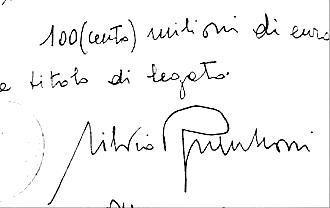 100 (cento) milioni di euro
a titolo di legato.
Silvio Berlusconi